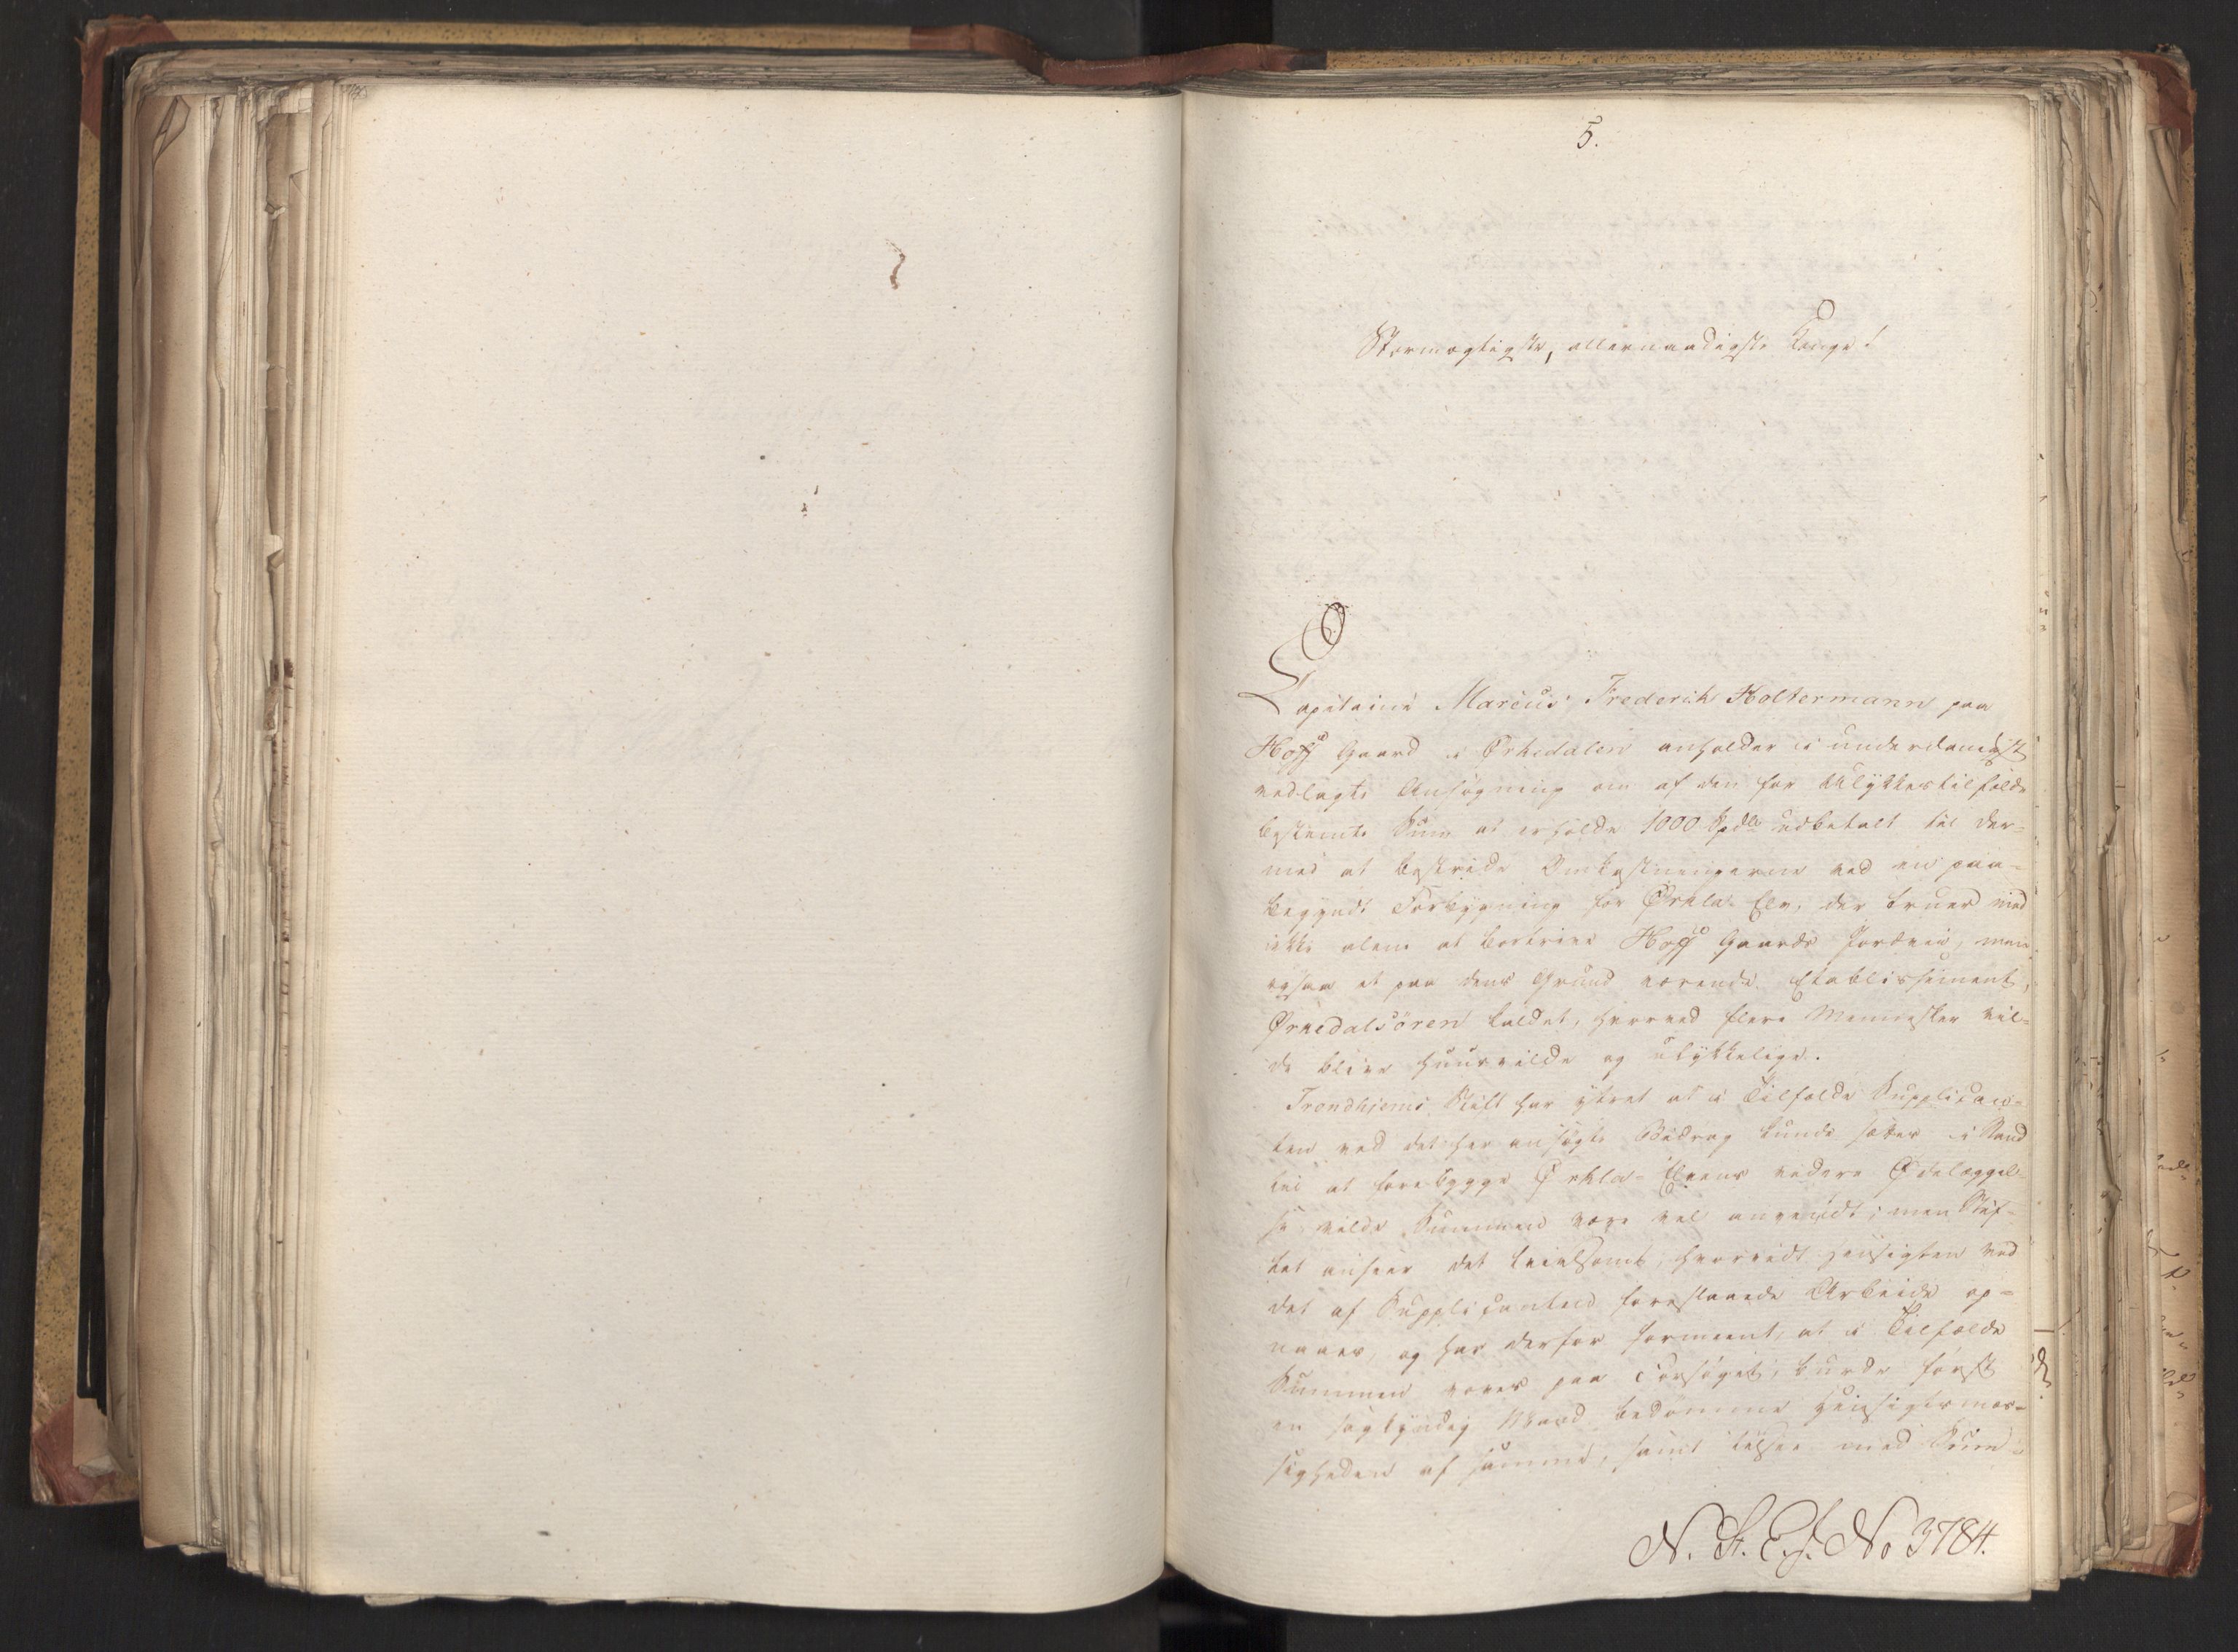 5.
Stormægtigste, allernaadigste Konge!
Capitaine Marcus Frederich Holtermann paa
Hoff Gaard i Ørkedalen anholder i underdanigst
vedlagte Ansøgning om af den for Ulykkestilfælde
bestemte Sum at erholde 1000 Spdlr udbetalt til der-
med at bestride Omkostningerne ved en paa-
begyndt Forbygning for Ørkla Elv, der truer med
ikke alene at bortrive Hoff Gaards Jordvei, men
ogsaa et paa dens Grund værende Etablissement,
Ørkedalsören kaldet, hvorved flere Mennesker vil-
de blive huusvilde og ulykkelige.
Trondhjems Stift har yttret at i Tilfælde Supplican-
ten ved det her ansøgte Bidrag kunde sættes i Stand
til at forebygge Ørkla-Elvens videre Ødelæggel-
se vilde Summen være vel anvendt; men Stif-
tet anseer det tvivlsomt, hvorvidt Hensigten ved
det af Supplicanten foreslaaede Arbeide op-
naaes, og har derfor formeent, at i Tilfælde
Summen voves paa Forsøget, burde først
en sagkyndig Mand bedømme Hensigtsmæs-
sigheden af samme, samt tilsee med Sum-
N. St. E. J. No 3784.